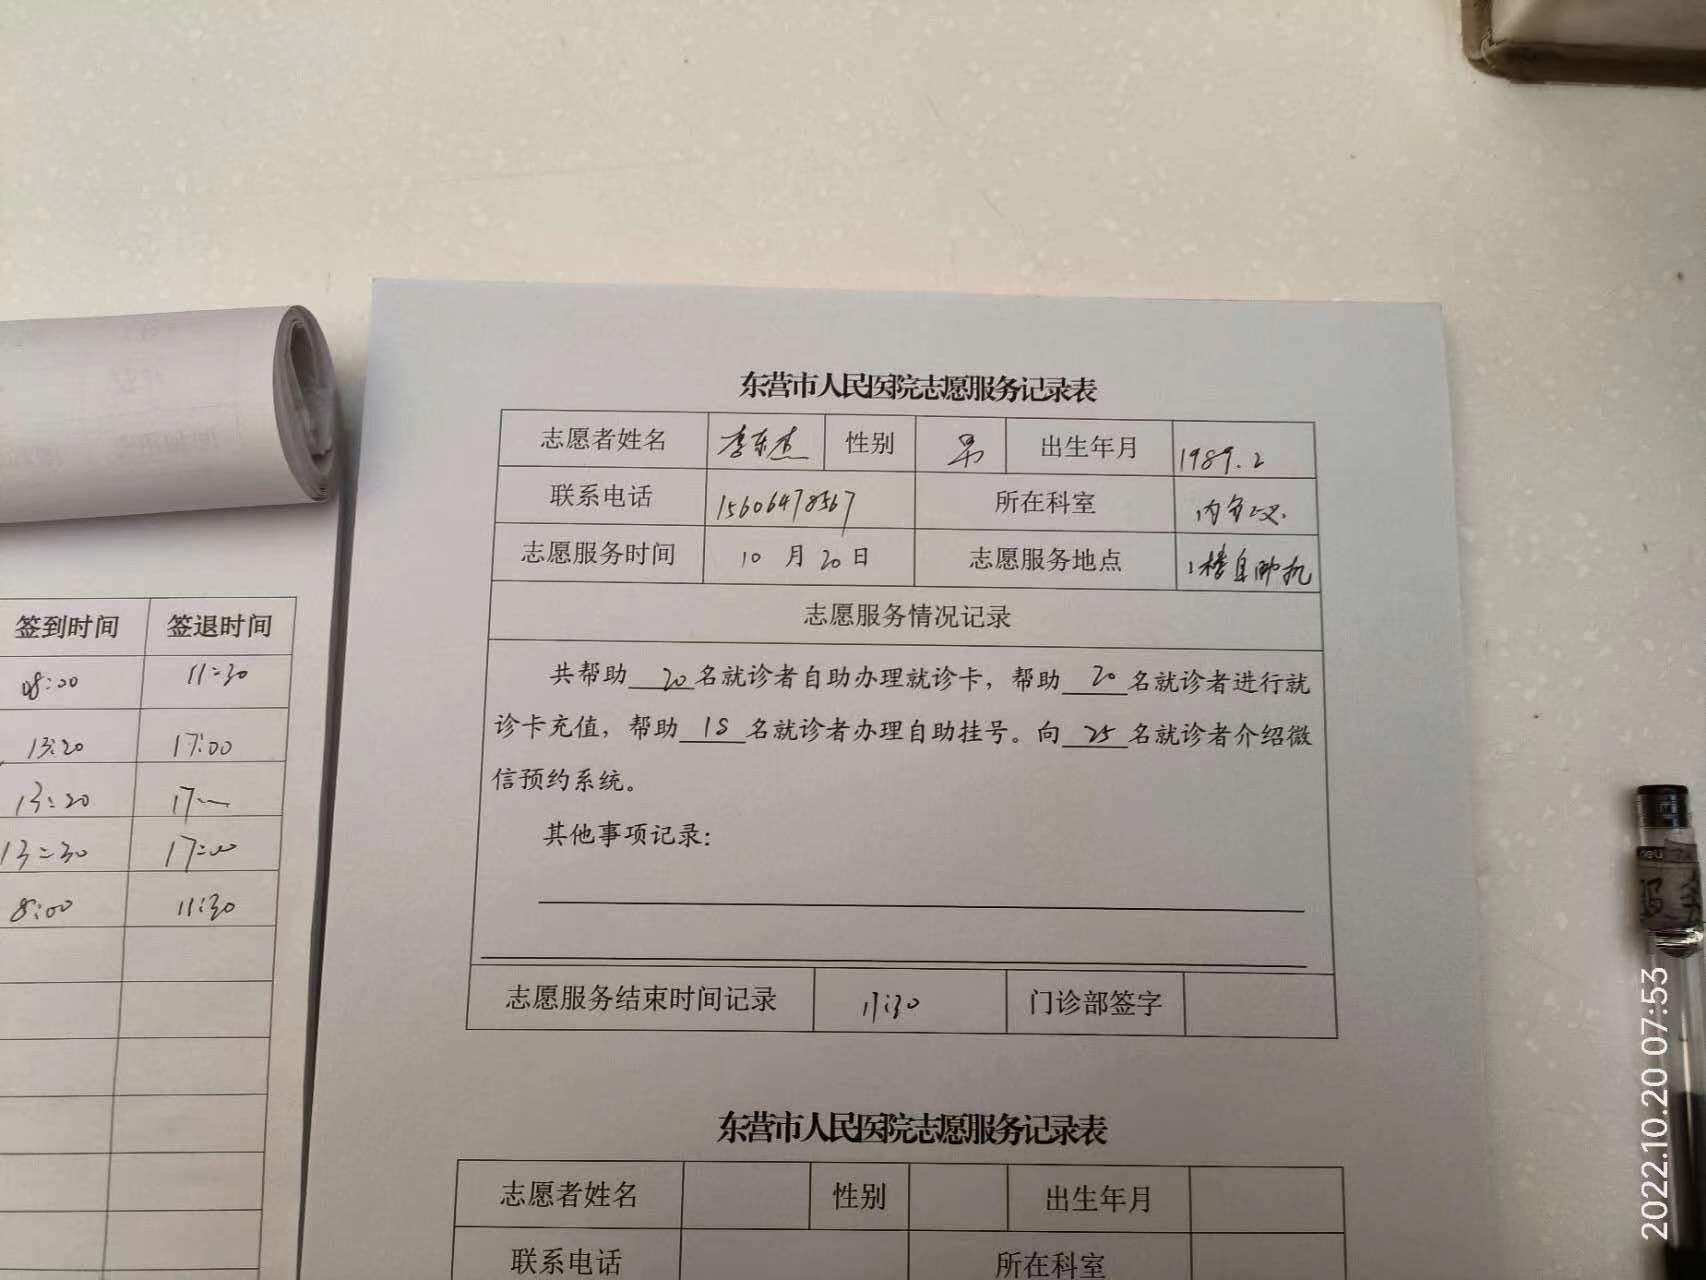 东营市人民医院志愿服务记录表
志愿者姓名 李东杰 性别 男 出生年月 1989.2
联系电话 15606478567 所在科室
志愿服务时间 10 月 20 日 志愿服务地点 1楼自助机
志愿服务情况记录
共帮助 20 名就诊者自助办理就诊卡，帮助 20 名就诊者进行就
诊卡充值，帮助 18 名就诊者办理自助挂号。向 25 名就诊者介绍微
信预约系统。
其他事项记录：
志愿服务结束时间记录 11:30 门诊部签字
东营市人民医院志愿服务记录表
志愿者姓名 性别 出生年月
联系电话 所在科室
签到时间 签退时间
08:00 11:30
13:20 17:00
13:20 17
13:30 17:00
8:00 11:30
deli
2022.10.20 07:53